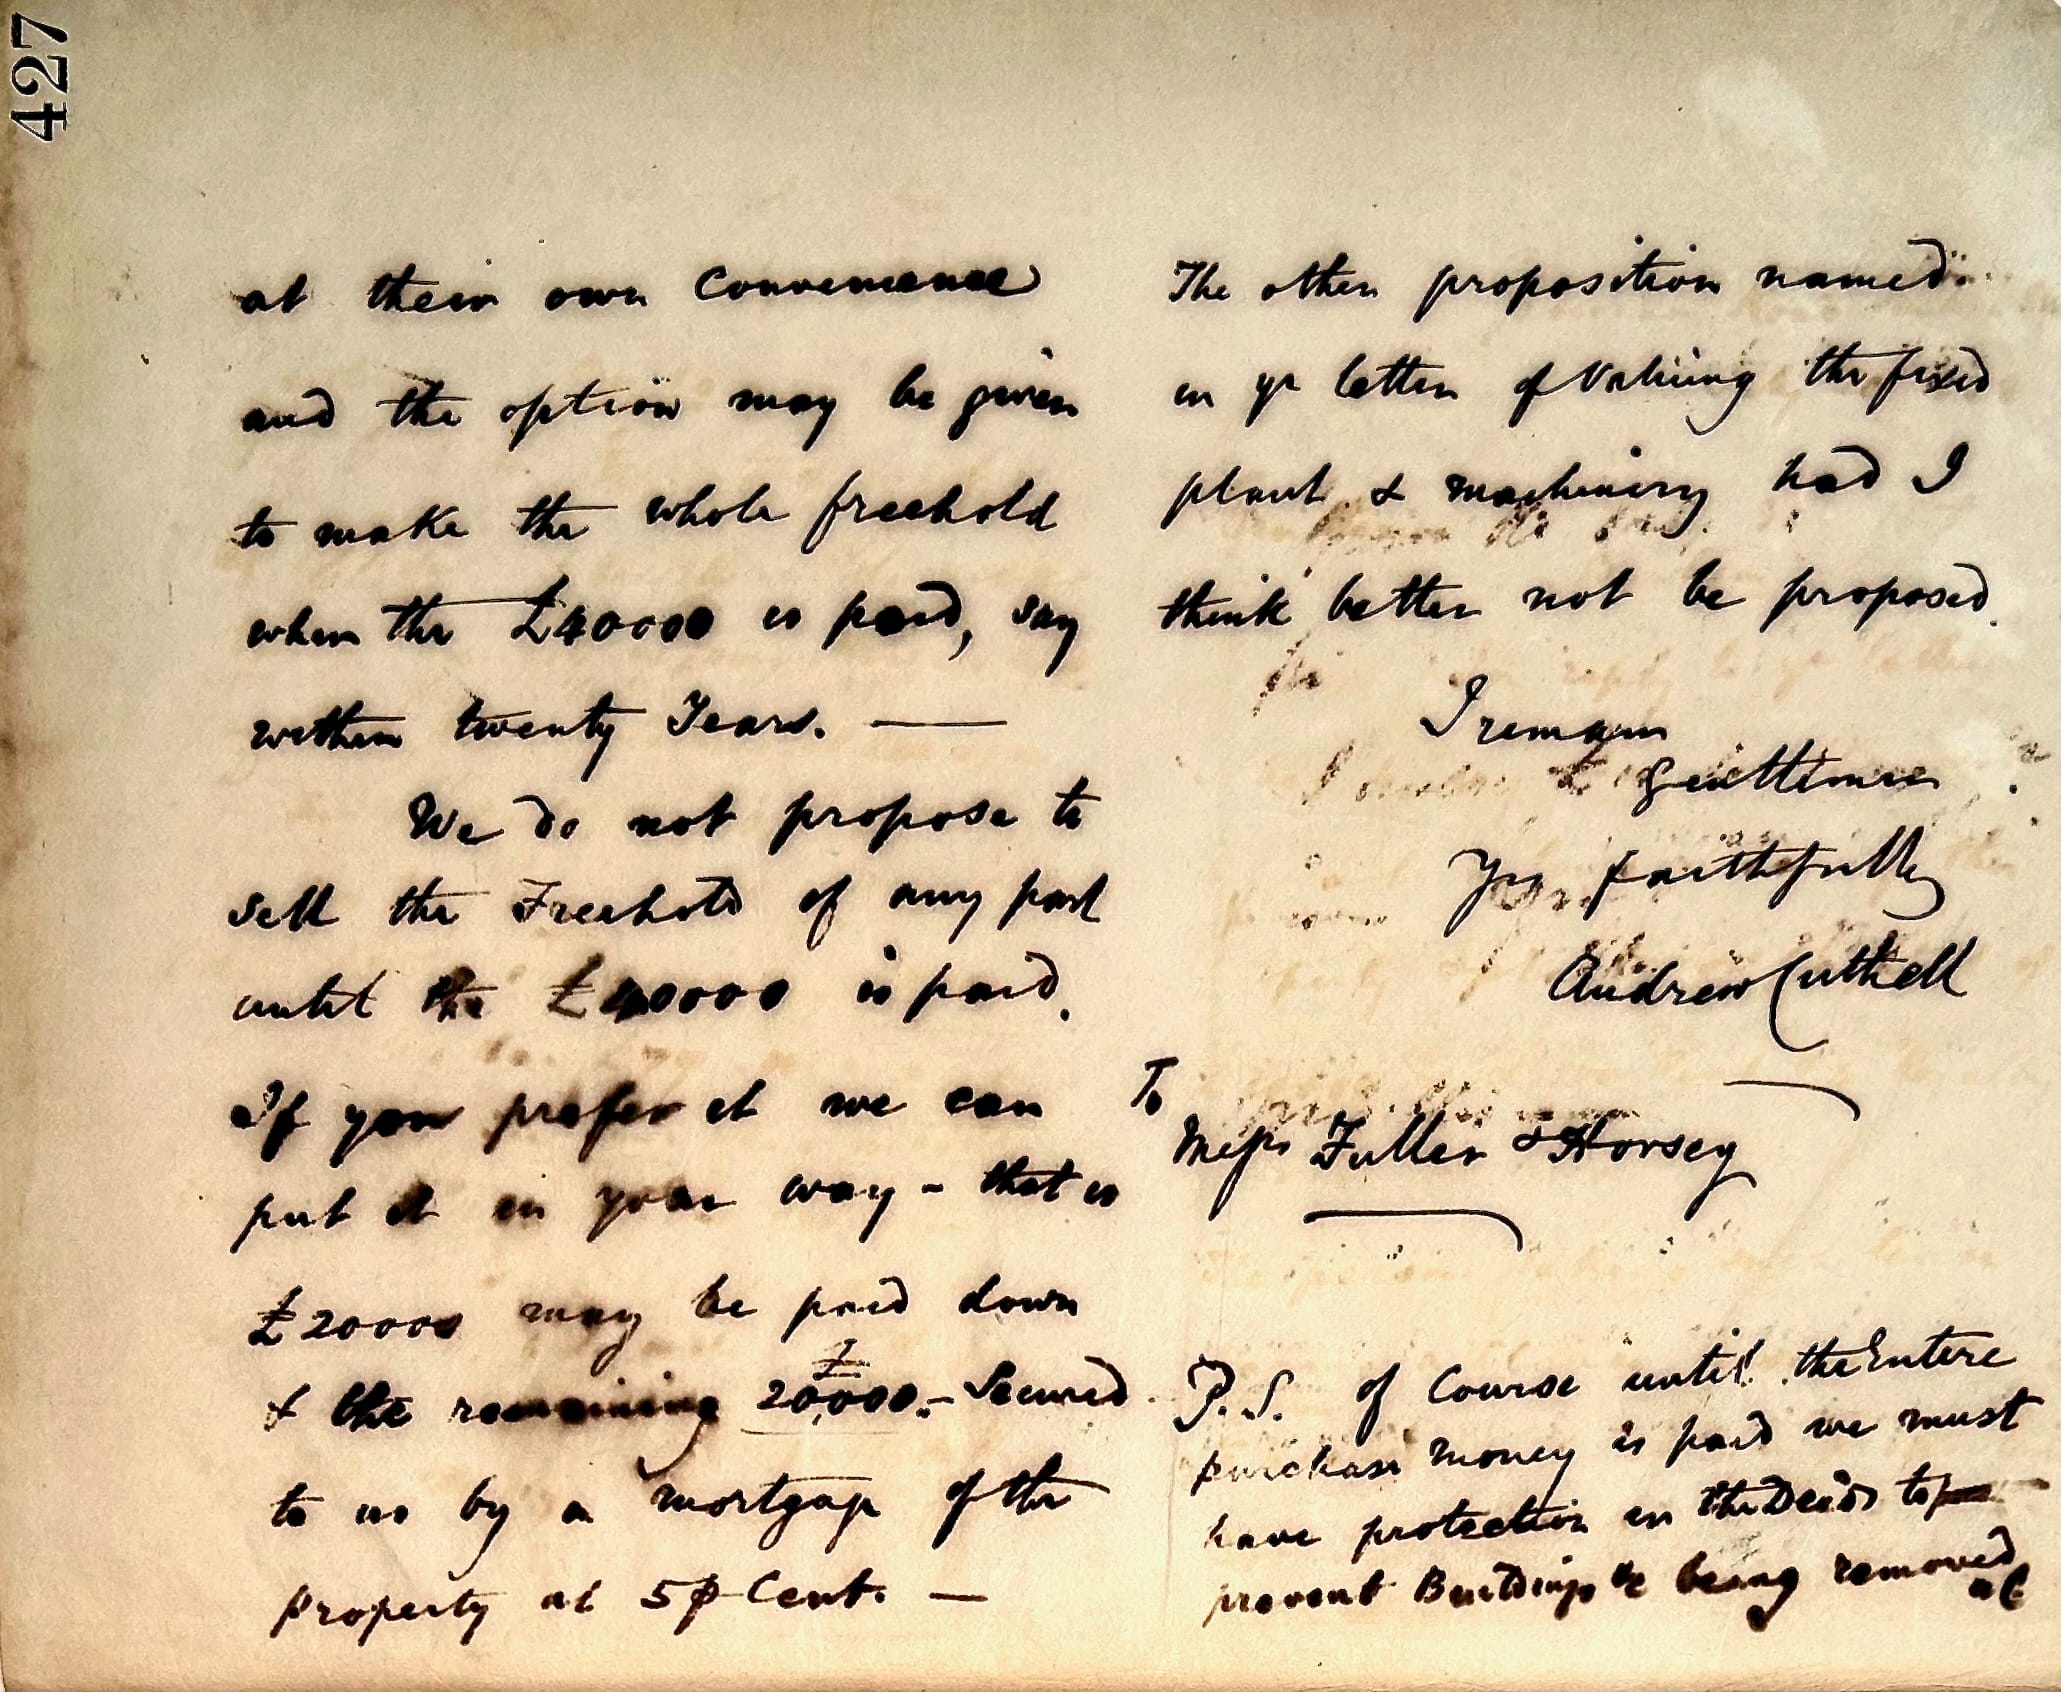 427
at their own convenience
and the option may be given
to make the whole freehold
when the £40000 is paid, say
within twenty Years. —
We do not propose to
sell the Freehold of any part
until the £40000 is paid.
If you prefer it we can
put it in your way - that is
£20000 may be paid down
& the remaining £20,000.- Secured
to us by a mortgage of the
property at 5 p Cent. —
The other proposition named
in yr letter of Valuing the fixed
plant & machinery had I
think better not be proposed.
I remain
Gentlemen
Yrs faithfully
Andrew Cuthell
To
Messrs Fuller & Horsey
P.S. of Course until the Entire
purchase money is paid we must
have protection in the Deeds to
prevent Buildings &c being removed